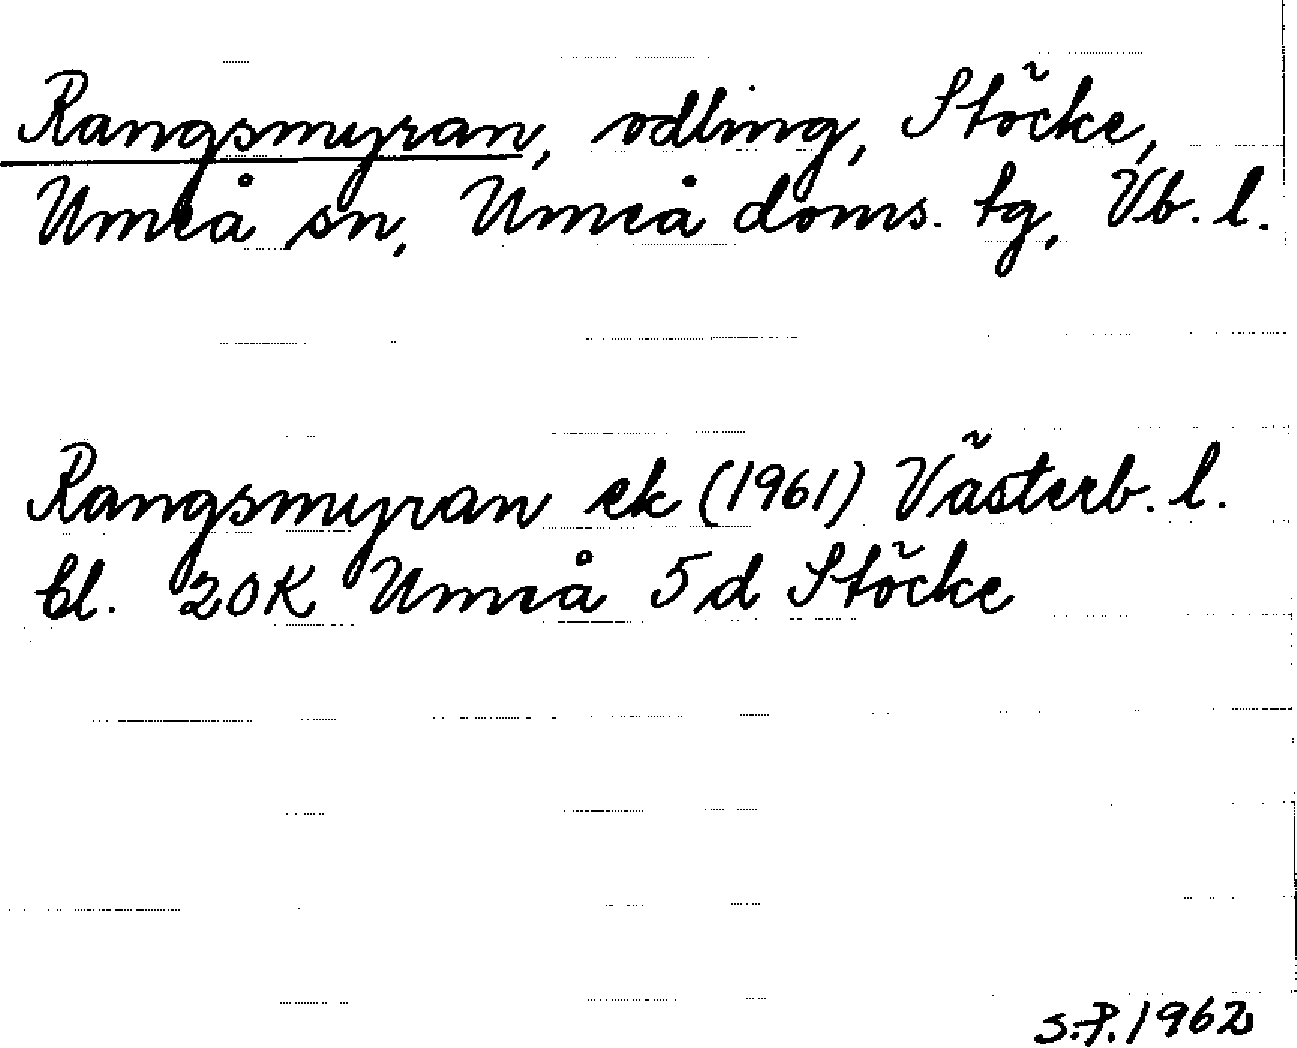 Rangsmyran, odling, Stöcke,
Umeå sn, Umeå doms. tg, Vb. l.
Rangsmyran ek (1961) Västerb. l.
bl. 20K Umeå 5d Stöcke
S.P. 1962